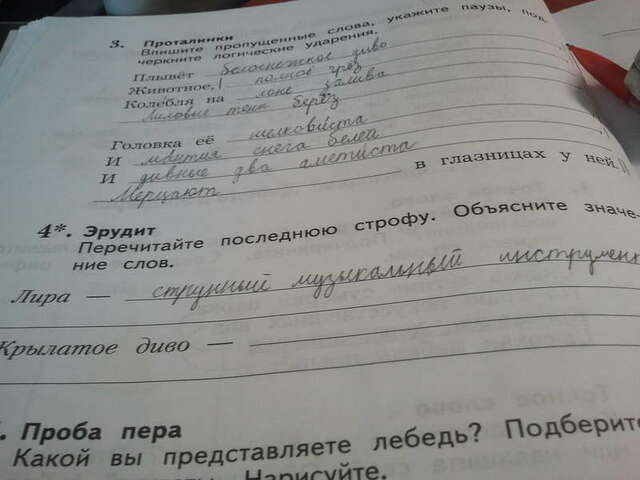 3. Проталинки
Впишите пропущенные слова, укажите паузы, под-
черкните логические ударения.
Плывёт белоснежное диво
Животное, | полное грёз
Колебля на лоне залива
Лиловые тени берёз
Головка её шелковиста
И мантия снега белей
И дивные два аметиста
Мерцают в глазницах у ней. ||
4*. Эрудит
Перечитайте последнюю строфу. Объясните значе-
ние слов.
Лира — струнный музыкальный инструмент
Крылатое диво —
. Проба пера
Какой вы представляете лебедь? Подберите
Нарисуйте.